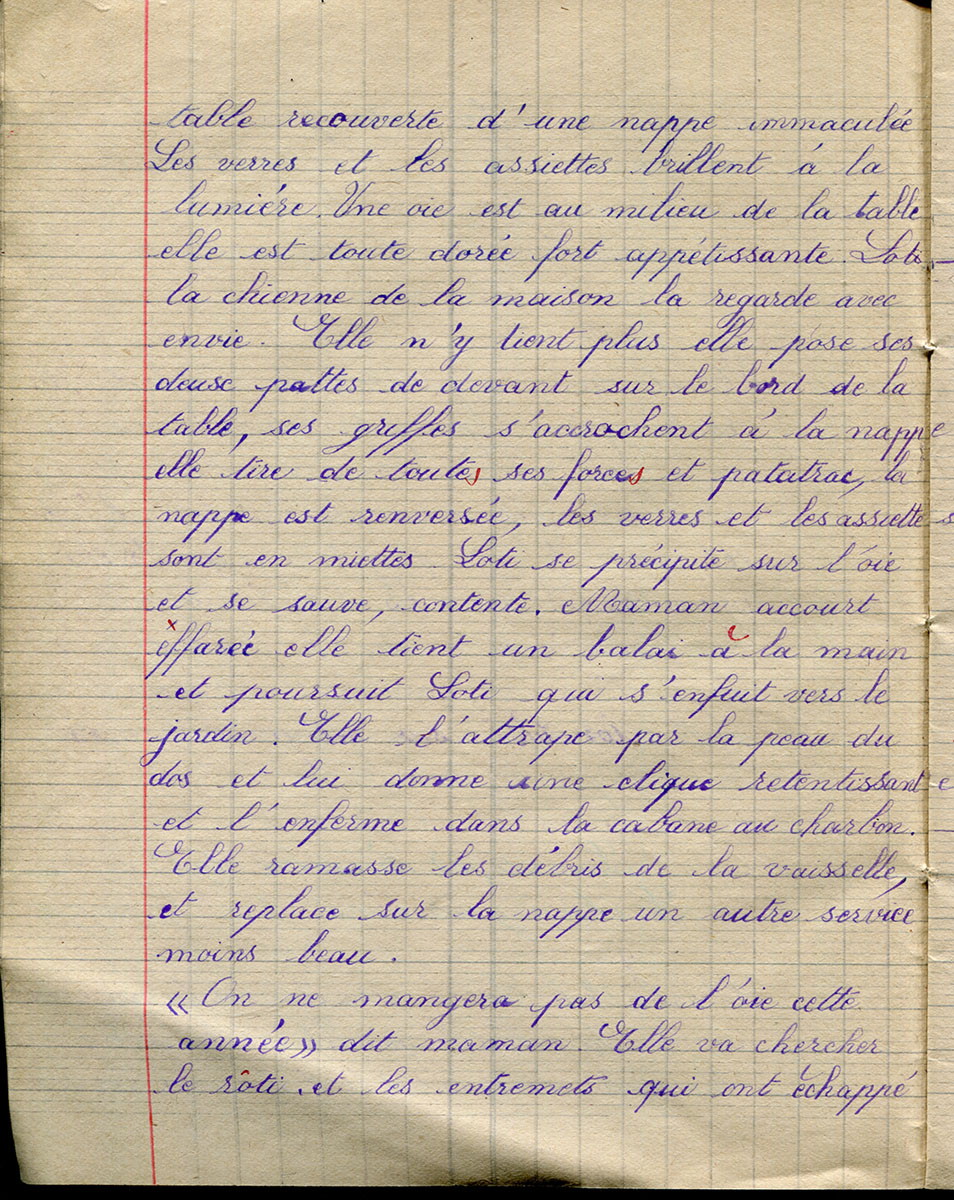 table recouverte d'une nappe immaculée
Les verres et les assiettes brillent à la
lumière. Une oie est au milieu de la table
elle est toute dorée fort appétissante. Loti
la chienne de la maison la regarde avec
envie. Elle n'y tient plus elle pose ses
deuse pattes de devant sur le bord de la
table, ses griffes s'accrochent à la nappe
elle tire de toutes ses forces et patatrac, la
nappe est renversée, les verres et les assiettes
sont en miettes Loti se précipite sur l'oie
et se sauve, contente. Maman accourt
effarée elle tient un balai à la main
et poursuit Loti qui s'enfuit vers le
jardin. Elle l'attrape par la peau du
dos et lui donne une clique retentissante
et l'enferme dans la cabane au charbon.
Elle ramasse les débris de la vaisselle,
et replace sur la nappe un autre service
moins beau.
« On ne mangera pas de l'oie cette
année» dit maman. Elle va chercher
le rôti et les entremets qui ont échappé